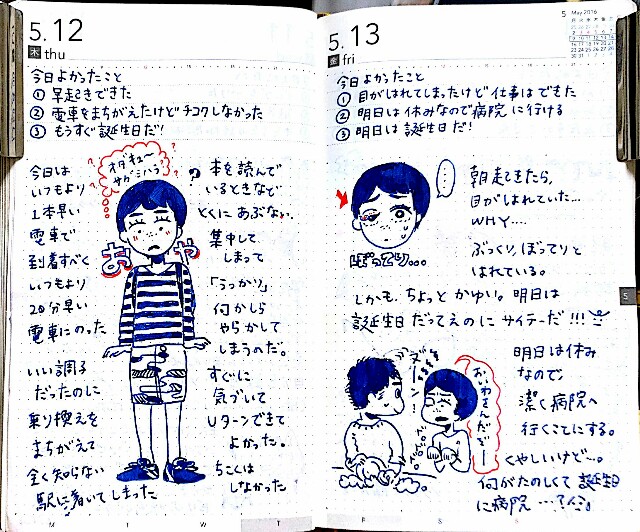 5.12
木 thu
今日よかったこと
① 早起きできた
② 電車をまちがえたけどチコクしなかった
③ もうすぐ誕生日だ!
オダキュー
サガミハラ
?
おや
今日は
いつもより
1本早い
電車で
到着すべく
いつもより
20分早い
電車にのった
いい調子
だったのに
乗り換えを
まちがえて
全く知らない
駅に着いてしまった
本を読んで
いるときなど
とくにあぶない。
集中して
しまって
「うっかり」
何かしら
やらかして
しまうのだ。
すぐに
気づいて
Uターンできて
よかった。
ちこくは
しなかった
M T W T
5 May 2016
月 火 水 木 金 土 日
5.13
金 fri
今日よかったこと
① 目がはれてしまったけど仕事はできた
② 明日は休みなので病院に行ける
③ 明日は誕生日だ!
ぼってり…
朝起きたら,
目がはれていた…
WHY….
ぶっくり,ぼってりと
はれている。
しかも,ちょっとかゆい。明日は
誕生日だってえのにサイテーだ!!!
明日は休み
なので,
潔く病院へ
行くことにする。
くやしいけど…。
何がたのしくて誕生日
に病院…?
5
F S